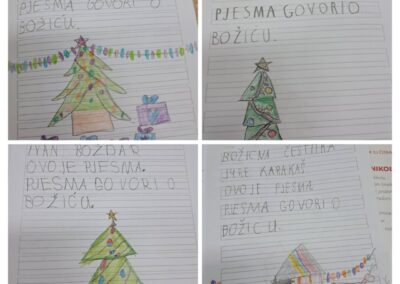 PJESMA GOVORI O
BOŽIĆU.
PJESMA GOVORI O
BOŽIĆU.
IVAN BOŽDAR
OVO JE PJESMA.
PJESMA GOVORI O
BOŽIĆU.
BOŽIĆNA ČESTITKA
JURE KARAKAŠ
OVO JE PJESMA
PJESMA GOVORI O
BOŽIĆU.
NIKOL